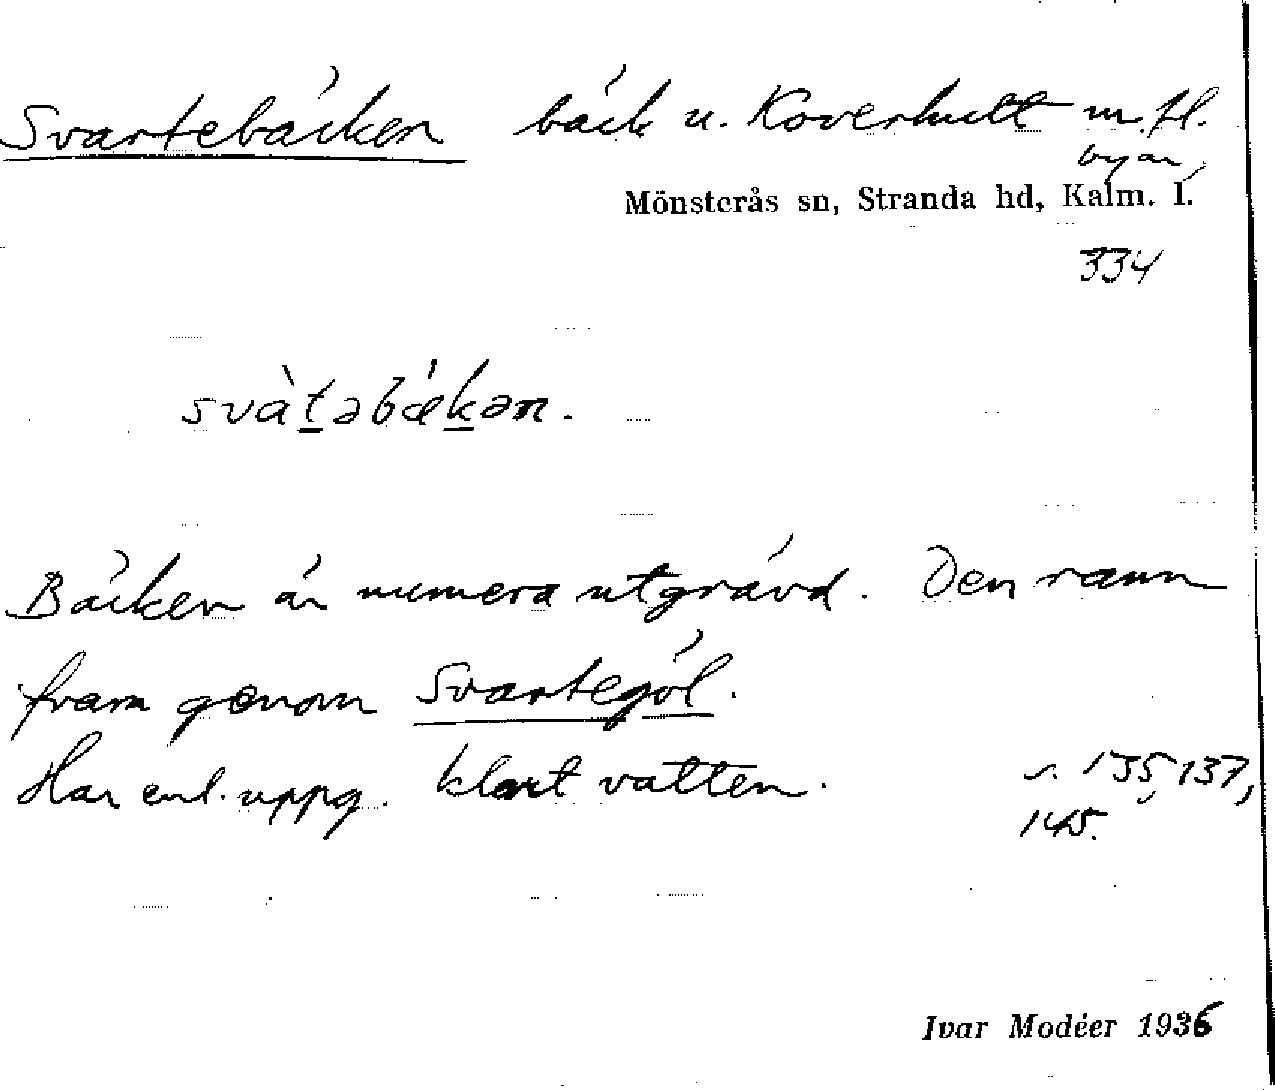 Svartebäcken bäck u. Koverhult m.fl.
byar,
Mönsterås sn, Stranda hd, Kalm. l.
334
svàtəbǽkən.
Bäcken är numera utgrävd. Den rann
fram genom Svartegöl.
Har enl. uppg. klart vatten. s. 135, 137,
145.
Ivar Modéer 1936